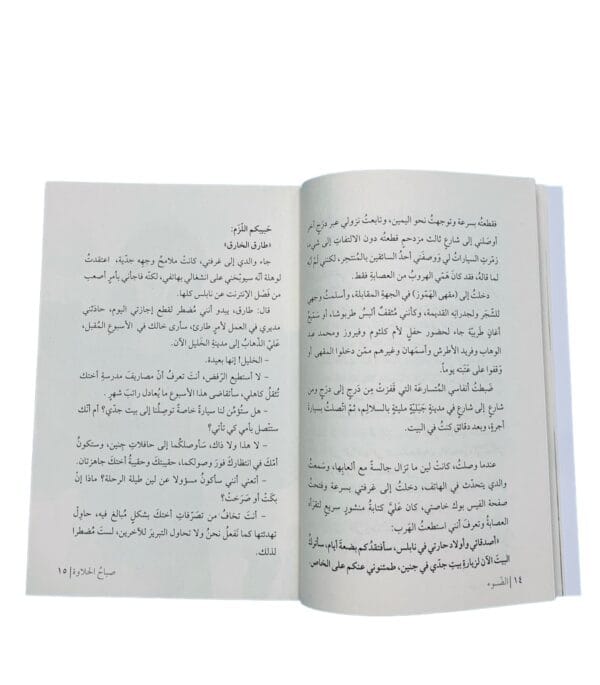 فقطعتُه بسرعة وتوجهتُ نحو اليمين، وتابعتُ نزولي عبر درَجٍ آخر
أوصَلني إلى شارعٍ ثالث مزدحمٍ قطعتُه دون الالتفاتِ إلى شيء،
زمَرتِ السياراتُ لي وَوصَفني أحدُ السائقين بالمُتَحجر، لكنني لم أُبهْ
لما قاله، فقد كان هَمّي الهروبُ من العصابة فقط.
دخلتُ إلى (مقهى الهَمّوز) في الجهةِ المقابلة، وأسلمتُ وجهي
للشجَر ولجدرانه القديمة، وكأنني مُثقفٌ ألبسُ طربوشا، أو سَمّيعُ
أغانٍ طَربيّة جاء لحضور حفل لأم كلثوم وفيروز ومحمد عبد
الوهاب وفريد الأطرش وأسمهان وغيرهم ممّن دخلوا المقهى أو
وَقفوا على عَتَبته يوماً.
ضَبطتُ أنفاسي المُتسارعَة التي قَفزتُ مِن دَرجٍ إلى دَرَجٍ ومن
شارعٍ إلى شارعٍ في مدينةٍ جَبَليّةٍ مليئةٍ بالسلالِمِ، ثم اتّصلتُ بسيارة
أجرة، وبعد دقائق كنتُ في البيت.
عندما وصلتُ، كانَتْ لين ما تزال جالسة مع ألعابِها، وسَمعتُ
والدي يتحدّث في الهاتف، دخلتُ إلى غرفتي بسرعة وفتحتُ
صفحة الفيس بوك خاصتي، كان عَليَّ كتابةُ منشورٍ سريعٍ لتقرأهُ
العصابةُ وتعرفَ أنني استطعتُ الهَرب:
«أصدقائي وأولاد حارتي في نابلس، سأفتقدكم بضعةَ أيام، سأترك
البيتَ الآن لزيارةِ بيتِ جدّي في جنين، طمئنوني عنكم على الخاص.
١٤ | الضّوء
حَبيبكم اللّزَم:
«طارق الخارق»
جاء والدي إلى غرفتي، كانتْ ملامحُ وجهِهِ جدّية، اعتقدتُ
لوهلة أنّه سيوبّخني على انشغالي بهاتفي، لكنّه فاجأني بأمرٍ أصعب
من فَصْل الإنترنت عن نابلس كلها.
قال: طارق، يبدو أنني مُضطر لقطعِ إجازتي اليوم، حادَثني
مديري في العمل لأمرٍ طارئ، سأرى خالك في الأسبوع المُقبل،
عَليَّ الذَّهابُ إلى مدينةِ الخَليل الآن.
– الخليل! إنها بعيدة.
– لا أستطيع الرّفضَ، أنتَ تعرفُ أنَّ مصاريفَ مدرسةِ أختك
تُثقلُ كاهلي، سأتقاضى هذا الأسبوع ما يُعادل راتبَ شهرٍ.
– هل ستُؤمّن لنا سيارةً خاصةً توصِلُنا إلى بيت جدّي؟ أم أنّك
ستتّصل بأمي كي تأتي؟
– لا هذا ولا ذاك، سَأوصلُكُما إلى حافلاتِ جِنين، وستكونُ
أمّكَ في انتظاركَ فورَ وصولكما، حقيبتكَ وحقيبةُ أختكَ جاهزتان.
– أتعني أنني سأكونُ مسؤولا عن لين طيلة الرحلة؟ ماذا إنْ
بكَتْ أو صَرَختْ؟
– أنتَ تخافُ من تصَرّفاتِ أختكَ بشكلٍ مُبالغٍ فيه، حاوِل
تهدئتها كما نَفعلُ نحنُ ولا تحاول التبريرَ للآخرين، لستَ مُضطرا
لذلك.
صباحُ الحَلاوة | ١٥